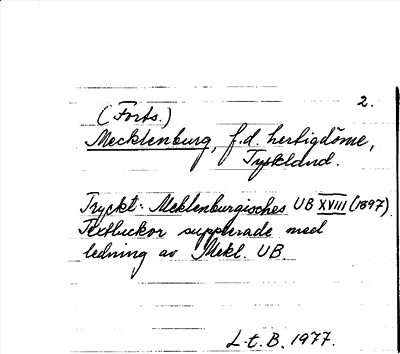 2.
(Forts.)
Mecklenburg, f.d. hertigdöme,
Tyskland.
Tryckt: Meklenburgisches UB XVIII (1897).
Textluckor supplerade med
ledning av Mekl. UB.
L-t. B. 1977.